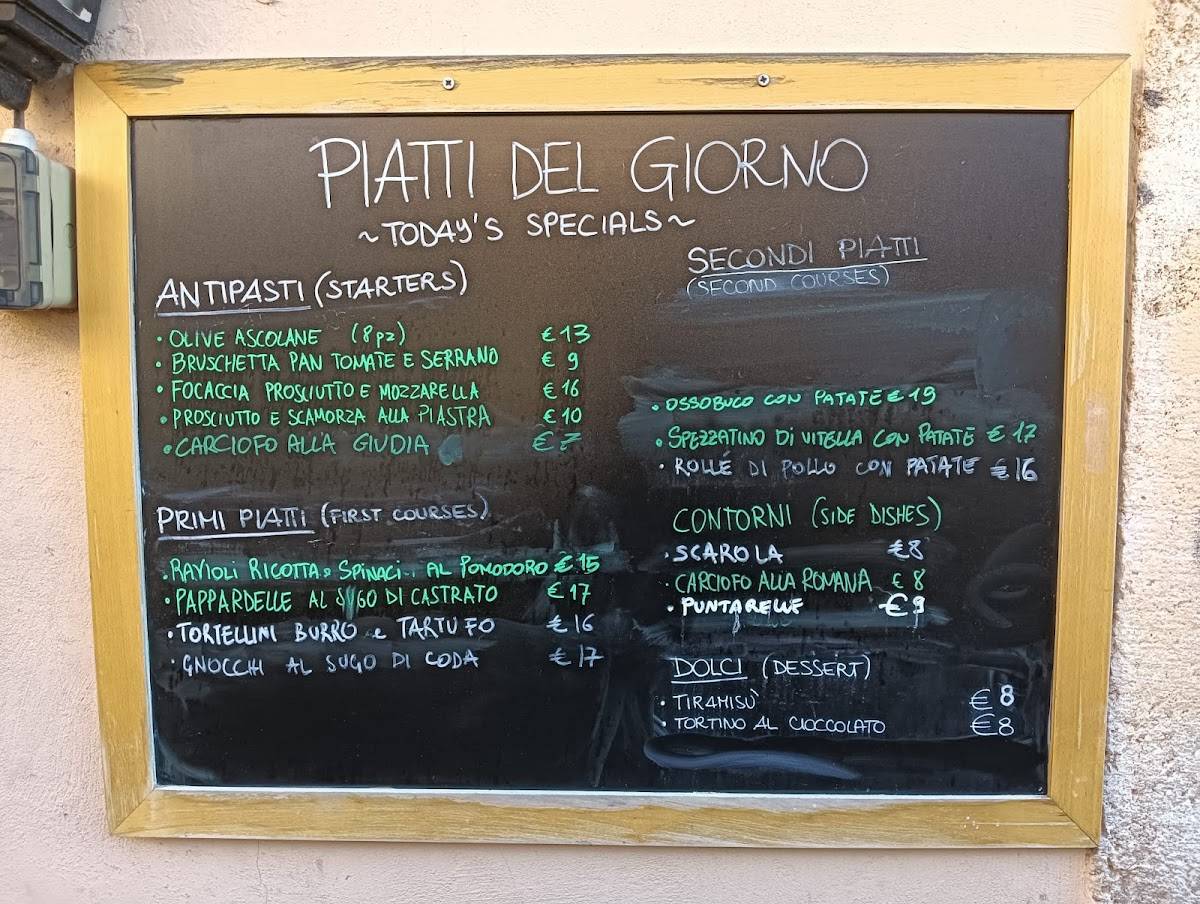 PIATTI DEL GIORNO
~TODAY'S SPECIALS~
ANTIPASTI (STARTERS)
• OLIVE ASCOLANE (8pz) € 13
• BRUSCHETTA PAN TOMATE E SERRANO € 9
• FOCACCIA PROSCIUTTO E MOZZARELLA € 16
• PROSCIUTTO E SCAMORZA ALLA PIASTRA € 10
• CARCIOFO ALLA GIUDIA € 7
PRIMI PIATTI (FIRST COURSES)
• RAVIOLI RICOTTA e SPINACI.. AL POMODORO € 15
• PAPPARDELLE AL SUGO DI CASTRATO € 17
• TORTELLINI BURRO e TARTUFO € 16
• GNOCCHI AL SUGO DI CODA € 17
SECONDI PIATTI
(SECOND COURSES)
• OSSOBUCO CON PATATE € 19
• SPEZZATINO DI VITELLA CON PATATE € 17
• ROLLÉ DI POLLO CON PATATE € 16
CONTORNI (SIDE DISHES)
• SCAROLA € 8
• CARCIOFO ALLA ROMANA € 8
• PUNTARELLE € 9
DOLCI (DESSERT)
• TIRAMISÙ € 8
• TORTINO AL CIOCCOLATO € 8